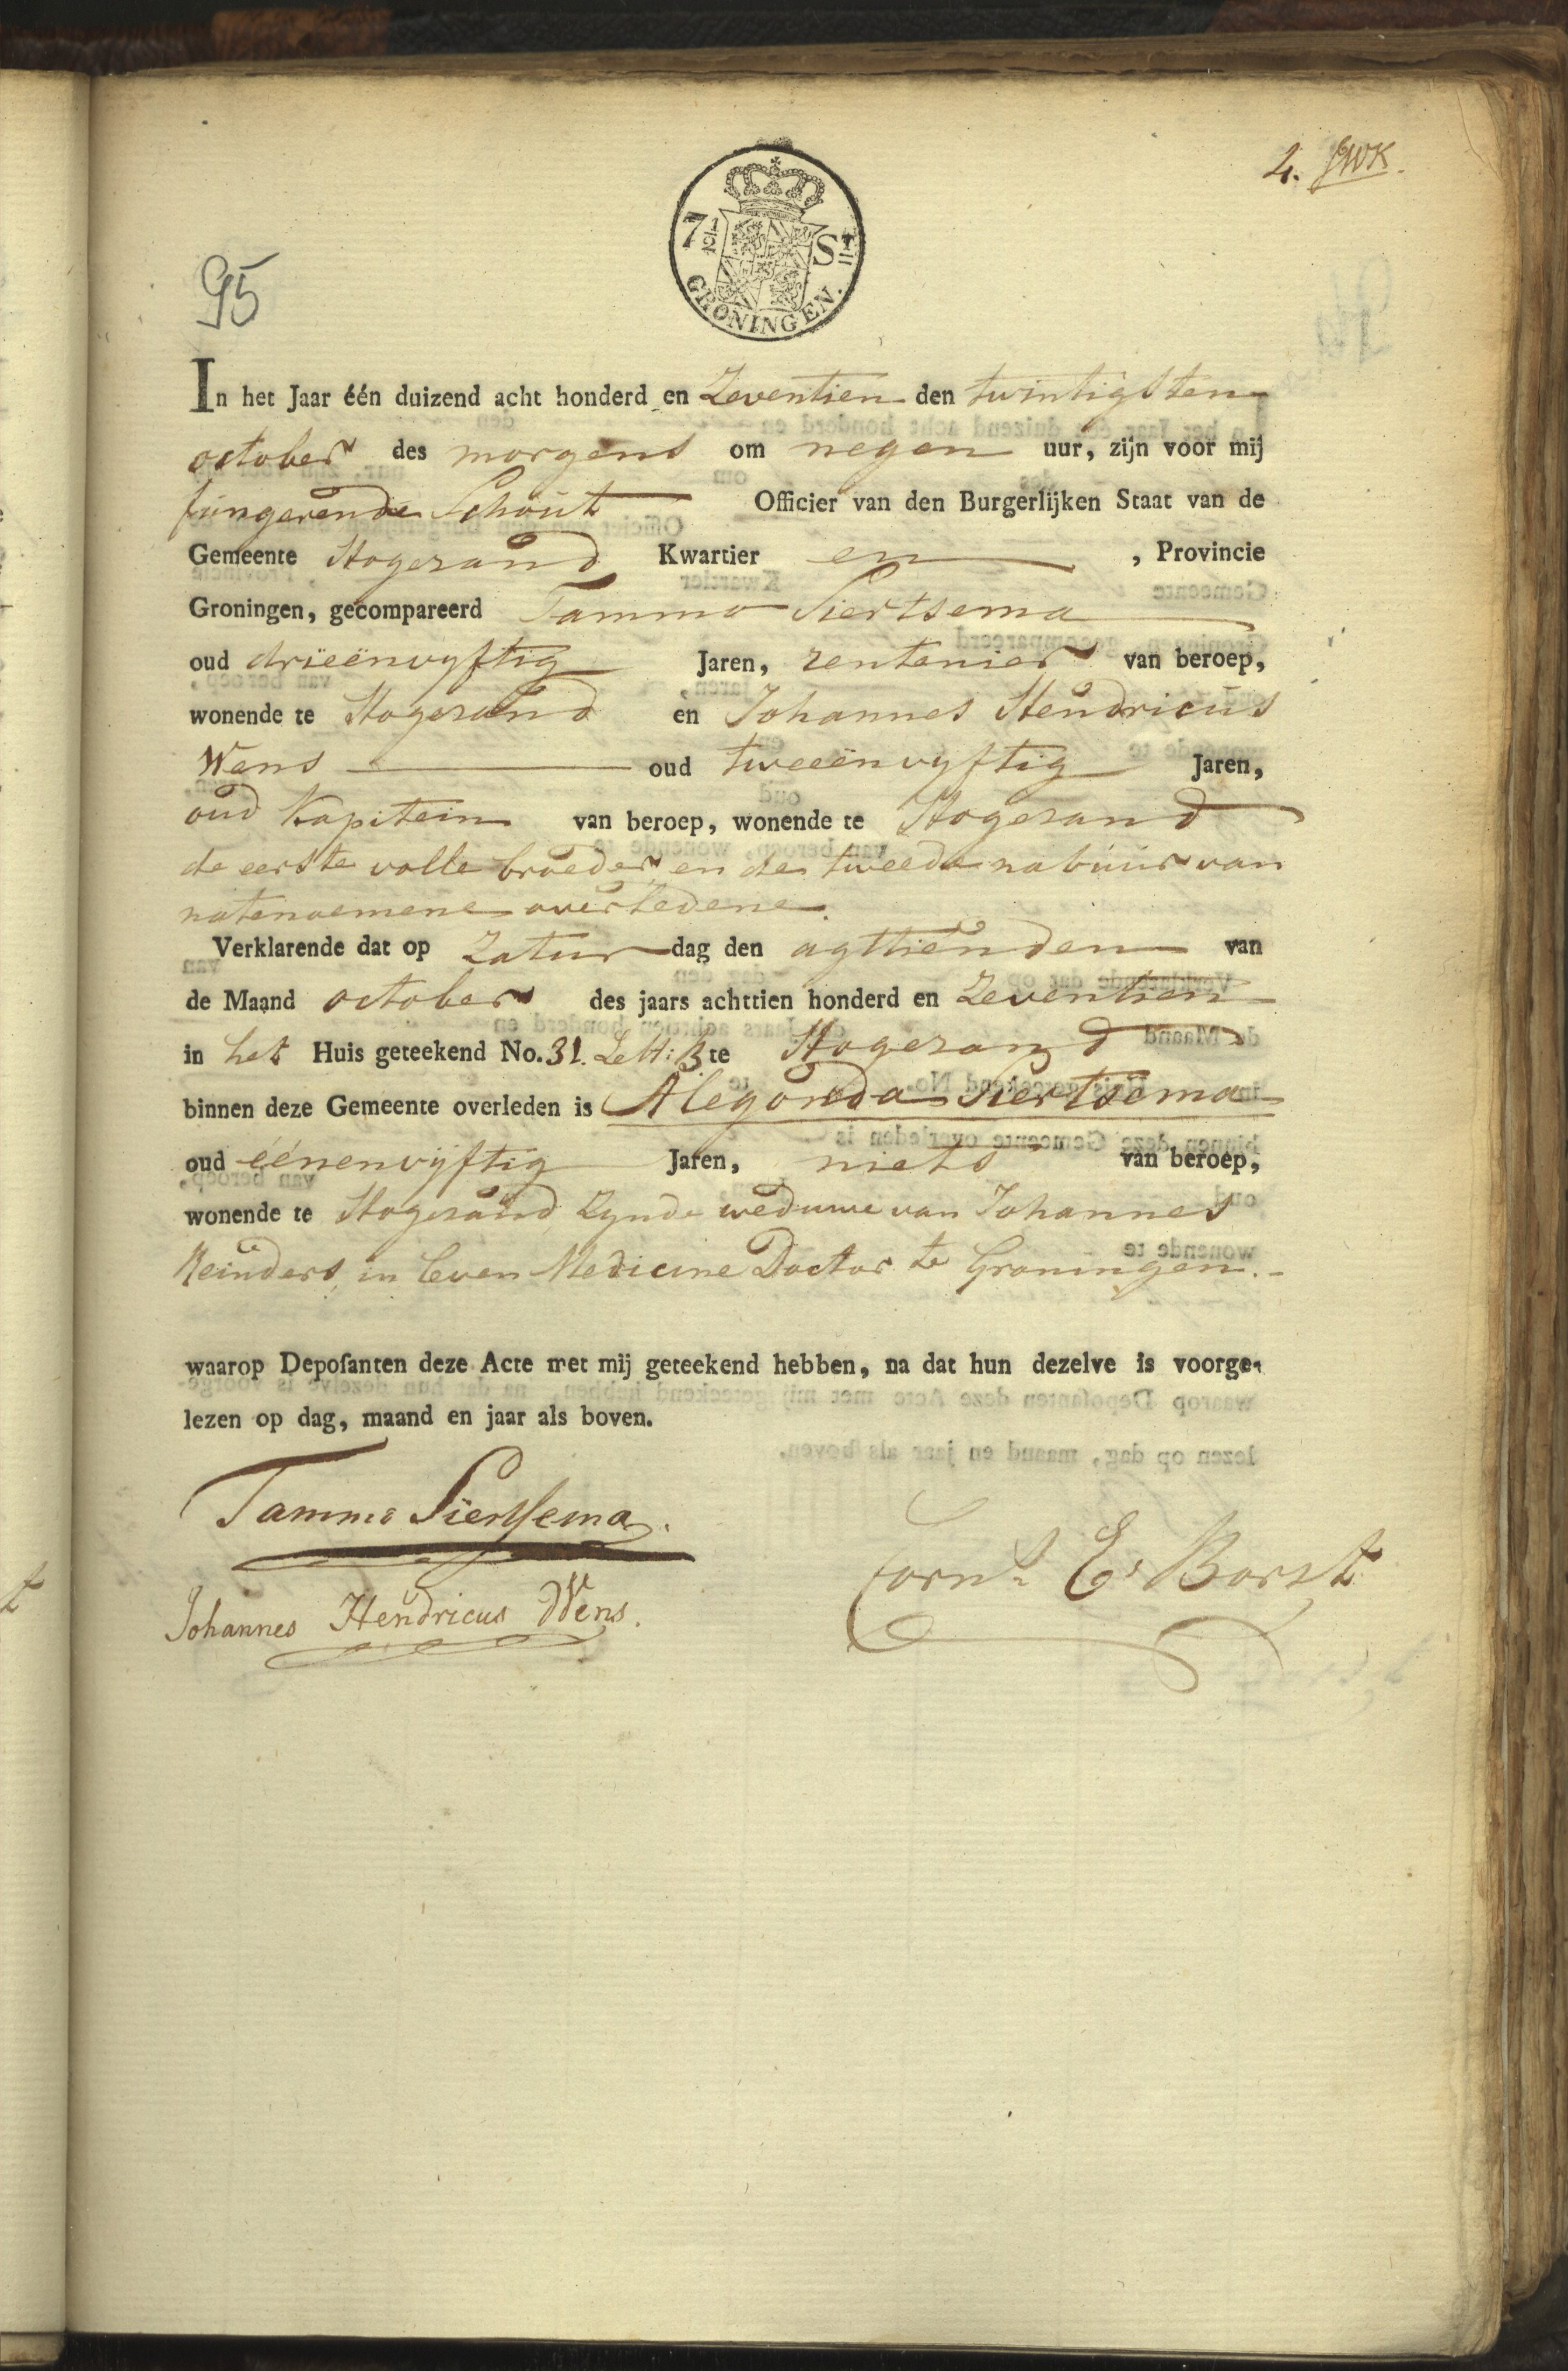 4. JWK.
7½ St
GRONINGEN.
95
In het Jaar één duizend acht honderd en Zeventien den twintigsten
october des morgens om negen uur, zijn voor mij
fungerende Schout Officier van den Burgerlijken Staat van de
Gemeente Hogezand Kwartier en , Provincie
Groningen, gecompareerd Tammo Siertsema
oud drieënvyftig Jaren, rentenier van beroep,
wonende te Hogezand en Johannes Hendricus
Wens oud tweeënvyftig Jaren,
oud Kapitein van beroep, wonende te Hogezand
de eerste volle broeder en de tweede nabuur van
natenoemene overledene
Verklarende dat op Zatur dag den agttienden van
de Maand october des jaars achttien honderd en Zeventien
in het Huis geteekend No. 31. Lett: B te Hogezand
binnen deze Gemeente overleden is Alegonda Siertsema
oud éénenvijftig Jaren, niets van beroep,
wonende te Hogezand Zynde weduwe van Johannes
Reinders, in leven Medicine Doctor te Groningen.
waarop Deposanten deze Acte met mij geteekend hebben, na dat hun dezelve is voorge-
lezen op dag, maand en jaar als boven.
Tammo Siertsema.
Corns. E. Borst
Johannes Hendricus Wens.